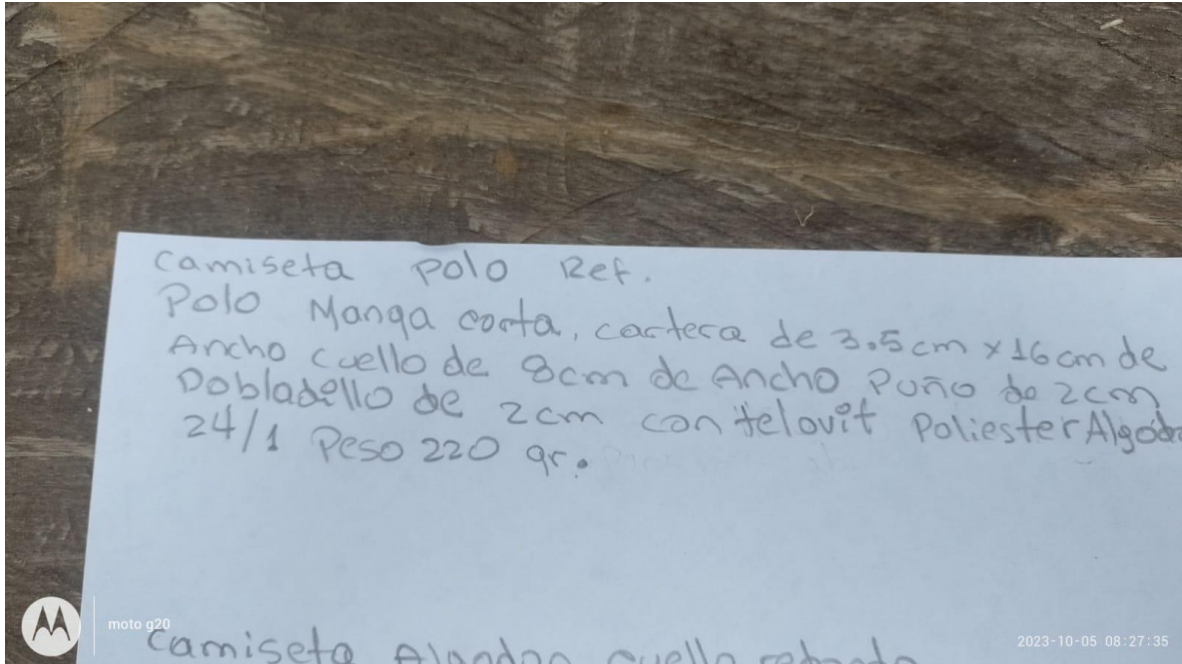 Camiseta Polo Ref.
Polo Manga corta, cartera de 3.5cm x 16cm de
Ancho Cuello de 8cm de Ancho Puño de 2cm
Dobladillo de 2cm con telovit Poliester Algod
24/1 Peso 220 gr.
Camiseta Algodon cuello redondo
moto g20
2023-10-05 08:27:35